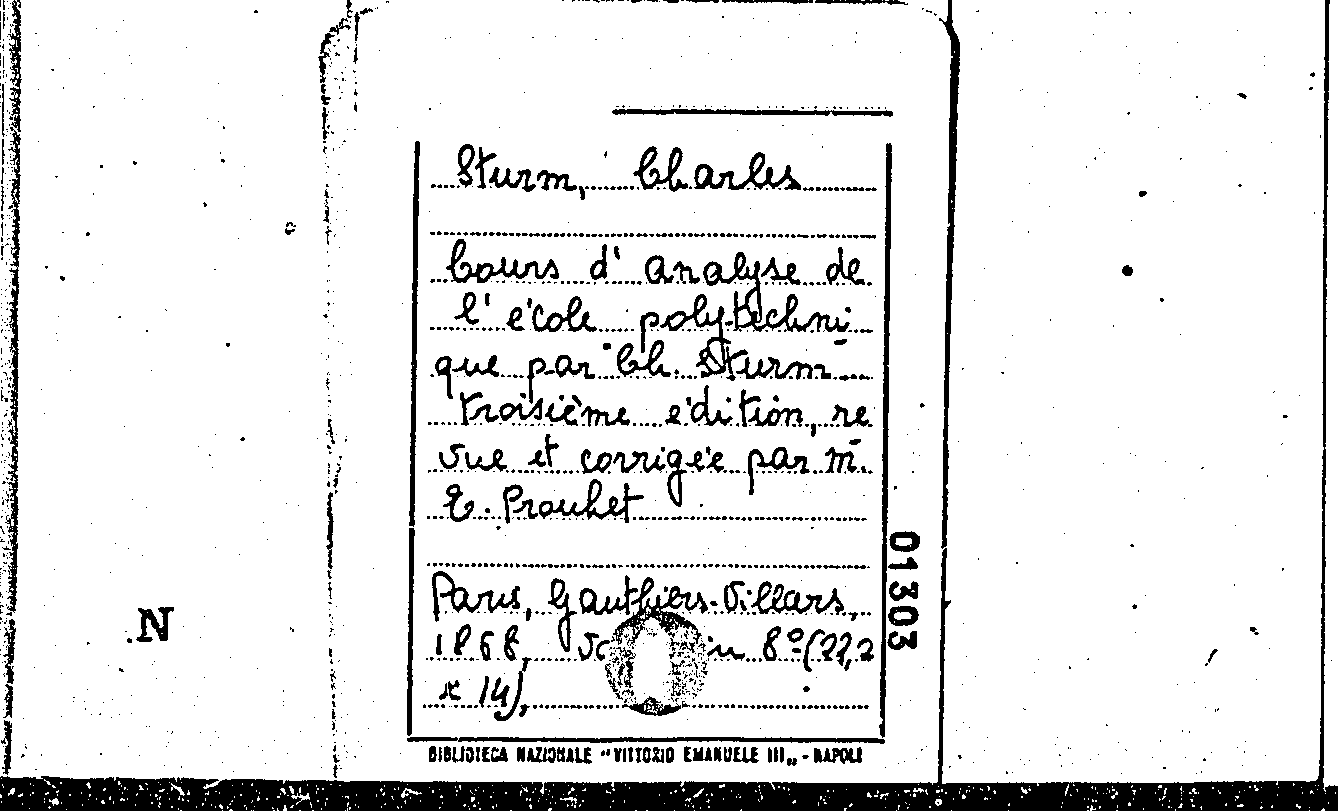 Sturm, Charles
Cours d'analyse de
l'école polytechni-
que par Ch. Sturm -
troisième édition, re
vue et corrigée par m.
E. Prouhet
Paris, Gauthiers-Villars,
1868, in 8º (22,2
x 14),
BIBLIOTECA NAZIONALE "VITTORIO EMANUELE III„ - NAPOLI
01303
.N